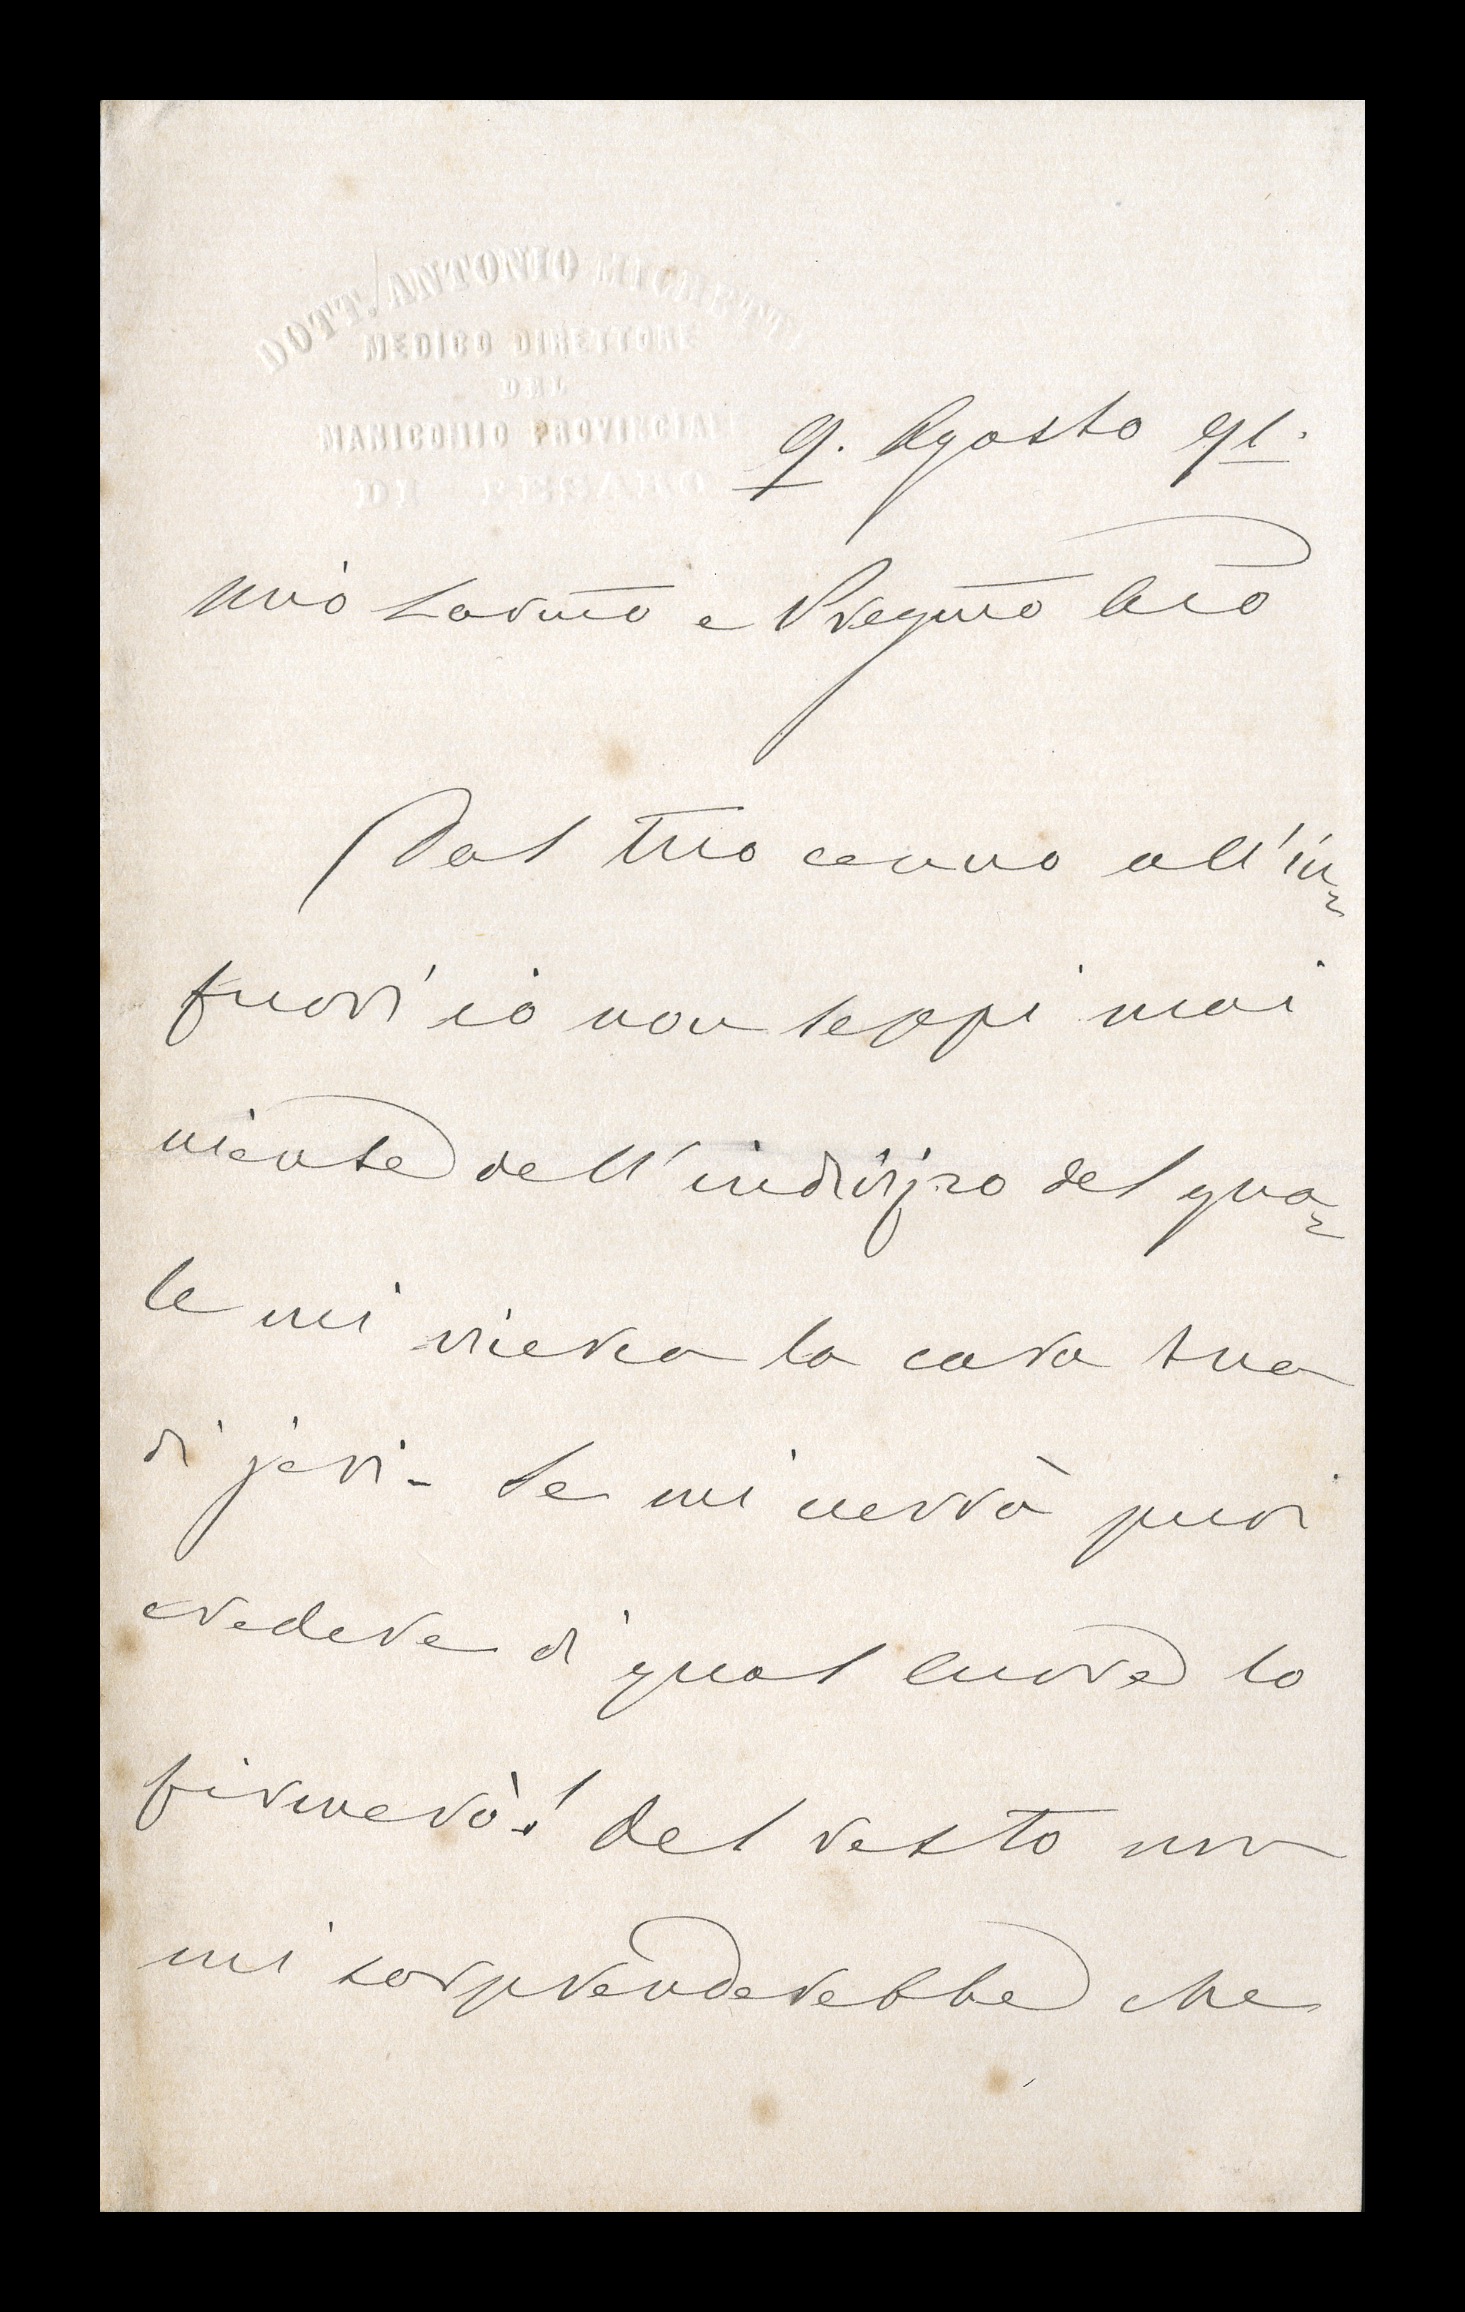 DOTT. ANTONIO MICHETTI
MEDICO DIRETTORE
DEL
MANICOMIO PROVINCIALE
DI PESARO
9. Agosto 91.
Mio Carmo e Pregmo Amo
Dal tuo cenno all'in-
fuori io non seppi mai
niente dell'indirizzo del qua-
le mi viene la cara tua
di jeri - Se mi verrà puoi
credere di qual cuore lo
firmerò! Del resto non
mi sorprenderebbe che